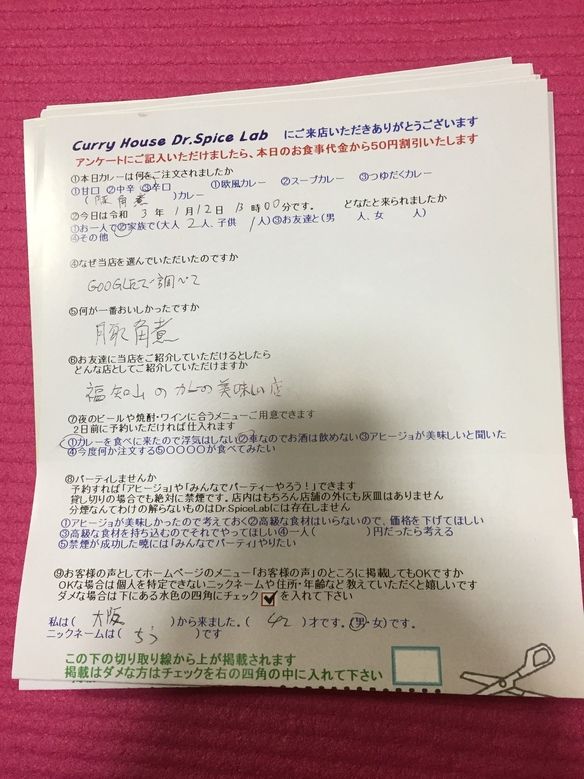 Curry House Dr.Spice Lab にご来店いただきありがとうございます
アンケートにご記入いただけましたら、本日のお食事代金から50円割引いたします
①本日カレーは何をご注文されましたか
①甘口 ②中辛 ③辛口 ①欧風カレー ②スープカレー ③つゆだくカレー
(豚角煮)カレー
②今日は令和 3年 1月12日 13時00分です。 どなたと来られましたか
①お一人で②家族で(大人 2人、子供 1人)③お友達と(男 人、女 人)
④その他
④なぜ当店を選んでいただいたのですか
GOOGLEで調べて
⑤何が一番おいしかったですか
豚角煮
⑥お友達に当店をご紹介していただけるとしたら
どんな店としてご紹介していただけますか
福知山のカレーの美味い店
⑦夜のビールや焼酎・ワインに合うメニューご用意できます
2日前に予約いただければ仕入れます
①カレーを食べに来たので浮気はしない②車なのでお酒は飲めない③アヒージョが美味しいと聞いた
④今度何か注文する⑤〇〇〇〇が食べてみたい
⑧パーティしませんか
予約すれば「アヒージョ」や「みんなでパーティーやろう!」できます
貸し切りの場合でも絶対に禁煙です。店内はもちろん店舗の外にも灰皿はありません
分煙なんてわけの解らないものはDr.SpiceLabには存在しません
①アヒージョが美味しかったので考えておく②高級な食材はいらないので、価格を下げてほしい
③高級な食材を持ち込むのでそれでやってほしい④一人( )円だったら考える
⑤禁煙が成功した暁には「みんなでパーティ」やりたい
⑨お客様の声としてホームページのメニュー「お客様の声」のところに掲載してもOKですか
OKな場合は個人を特定できないニックネームや住所・年齢など教えていただくと嬉しいです
ダメな場合は下にある水色の四角にチェック を入れて下さい
私は( 大阪 )から来ました。( 42 )才です。(男・女)です。
ニックネームは( ちう )です
この下の切り取り線から上が掲載されます
掲載はダメな方はチェックを右の四角の中に入れて下さい